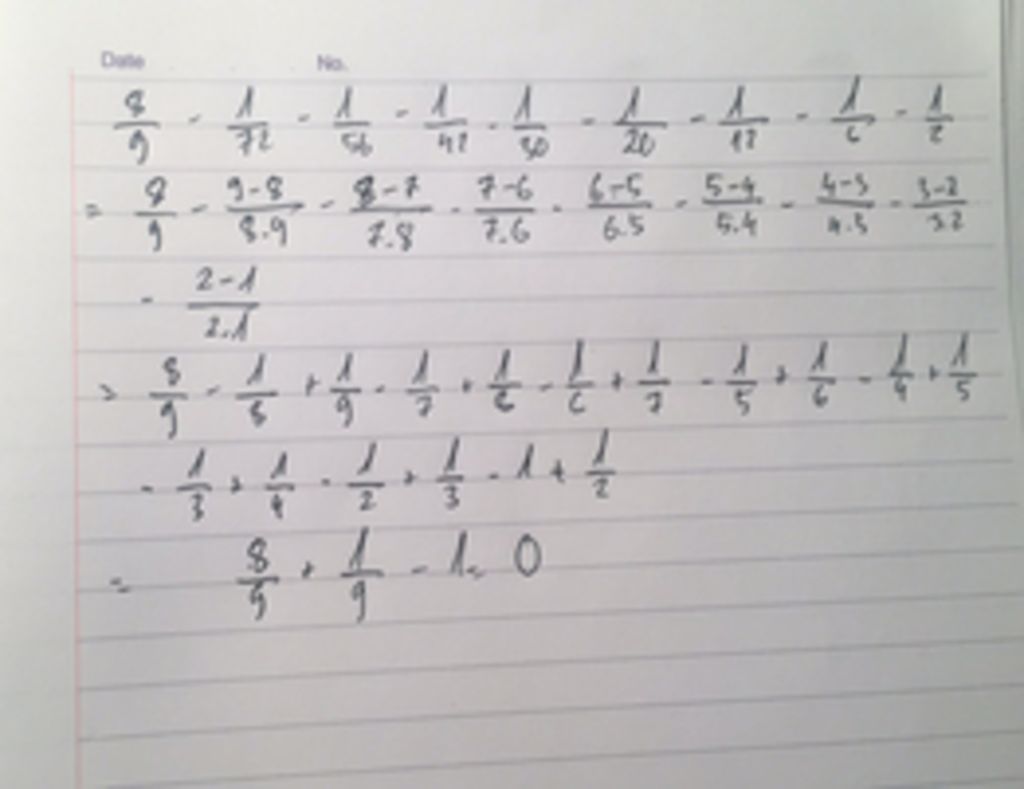 Date No.
8/9 - 1/72 - 1/56 - 1/42 - 1/30 - 1/20 - 1/12 - 1/6 - 1/2
= 8/9 - 9-8/8.9 - 8-7/7.8 - 7-6/7.6 - 6-5/6.5 - 5-4/5.4 - 4-3/4.3 - 3-2/3.2
- 2-1/2.1
= 8/9 - 1/8 + 1/9 - 1/7 + 1/8 - 1/6 + 1/7 - 1/5 + 1/6 - 1/4 + 1/5
- 1/3 + 1/4 - 1/2 + 1/3 - 1 + 1/2
= 8/9 + 1/9 - 1 = 0